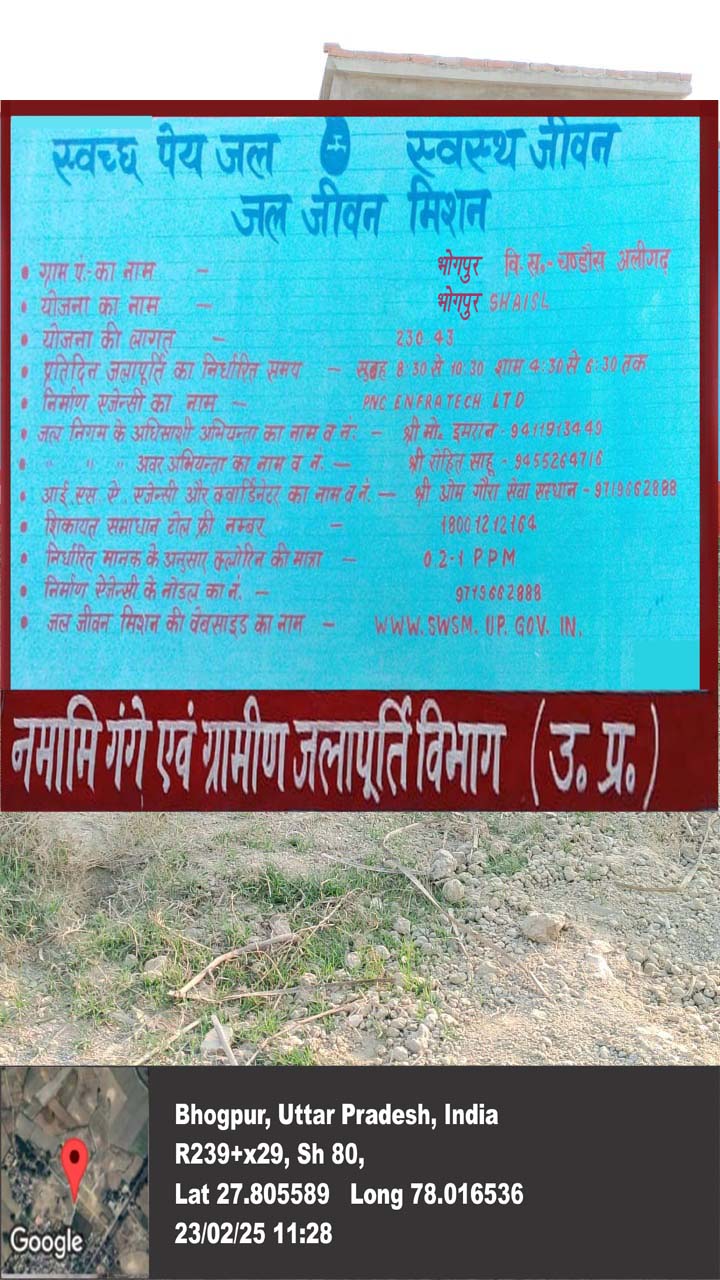 स्वच्छ पेय जल स्वस्थ जीवन
जल जीवन मिशन
• ग्राम पं.- का नाम – भोगपुर वि.ख.- चण्डौस अलीगढ़
• योजना का नाम – भोगपुर SHAISL
• योजना की लागत – 230.43
• प्रतिदिन जलापूर्ति का निर्धारित समय – सुबह 8:30 से 10:30 शाम 4:30 से 6:30 तक
• निर्माण एजेन्सी का नाम – PNC ENFRATECH LTD
• जल निगम के अधिसाशी अभियन्ता का नाम व नं. – श्री मो. इमरान - 9411913449
• " " " अवर अभियन्ता का नाम व नं. – श्री रोहित साहू - 9455264716
• आई. एस. ऐ. एजेन्सी और क्वार्डिनेटर का नाम व नं. – श्री ओम गौरा सेवा संस्थान - 9719662888
• शिकायत समाधान टोल फ्री नम्बर – 18001212164
• निर्धारित मानक के अनुसार क्लोरिन की मात्रा – 0.2-1 PPM
• निर्माण ऐजेन्सी के नोडल का नं. – 9719662888
• जल जीवन मिशन की वेबसाइड का नाम – WWW.SWSM.UP.GOV.IN.
नमामि गंगे एवं ग्रामीण जलापूर्ति विभाग (उ. प्र.)
Bhogpur, Uttar Pradesh, India
R239+x29, Sh 80,
Lat 27.805589 Long 78.016536
23/02/25 11:28
Google